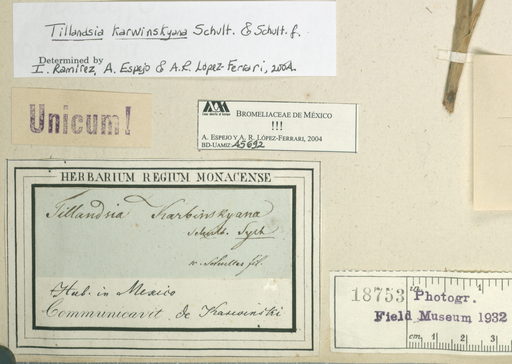 Tillandsia karwinskyana Schult. & Schult. f.
Determined by
I. Ramírez, A. Espejo & A.R. López-Ferrari, 2004
Unicum!
BROMELIACEAE DE MÉXICO
!!!
A. ESPEJO Y A. R. LÓPEZ-FERRARI, 2004
BD-UAMIZ: A5692
HERBARIUM REGIUM MONACENSE
Tillandsia Karwinskyana
Schult. Syst.
v. Schultes fil.
Hab. in Mexico
Communicavit de Karwinski
18753
Photogr.
Field Museum 1932
cm 1 2 3